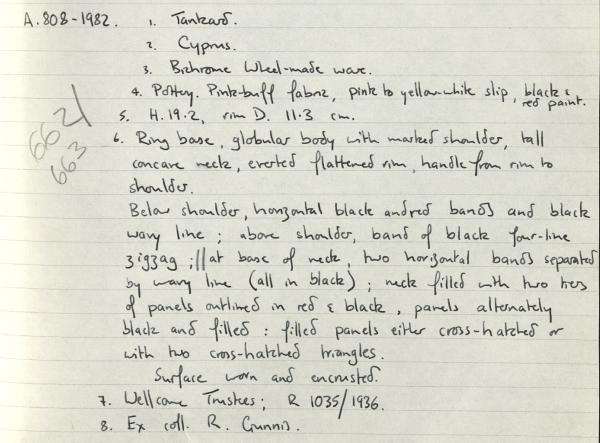 A.808-1982. 1. Tankard.
2. Cyprus.
3. Bichrome Wheel-made ware.
4. Pottery. Pink-buff fabric, pink to yellow-white slip, black & red paint.
5. H. 19.2, rim D. 11.3 cm.
6. Ring base, globular body with marked shoulder, tall
concave neck, everted flattened rim, handle from rim to
shoulder.
Below shoulder, horizontal black and red bands and black
wavy line ; above shoulder, band of black four-line
zigzag ; // at base of neck, two horizontal bands separated
by wavy line (all in black) ; neck filled with two tiers
of panels outlined in red & black, panels alternately
black and filled : filled panels either cross-hatched or
with two cross-hatched triangles.
Surface worn and encrusted.
7. Wellcome Trustees; R 1035/1936.
8. Ex coll. R. Gunnis.
662/
663